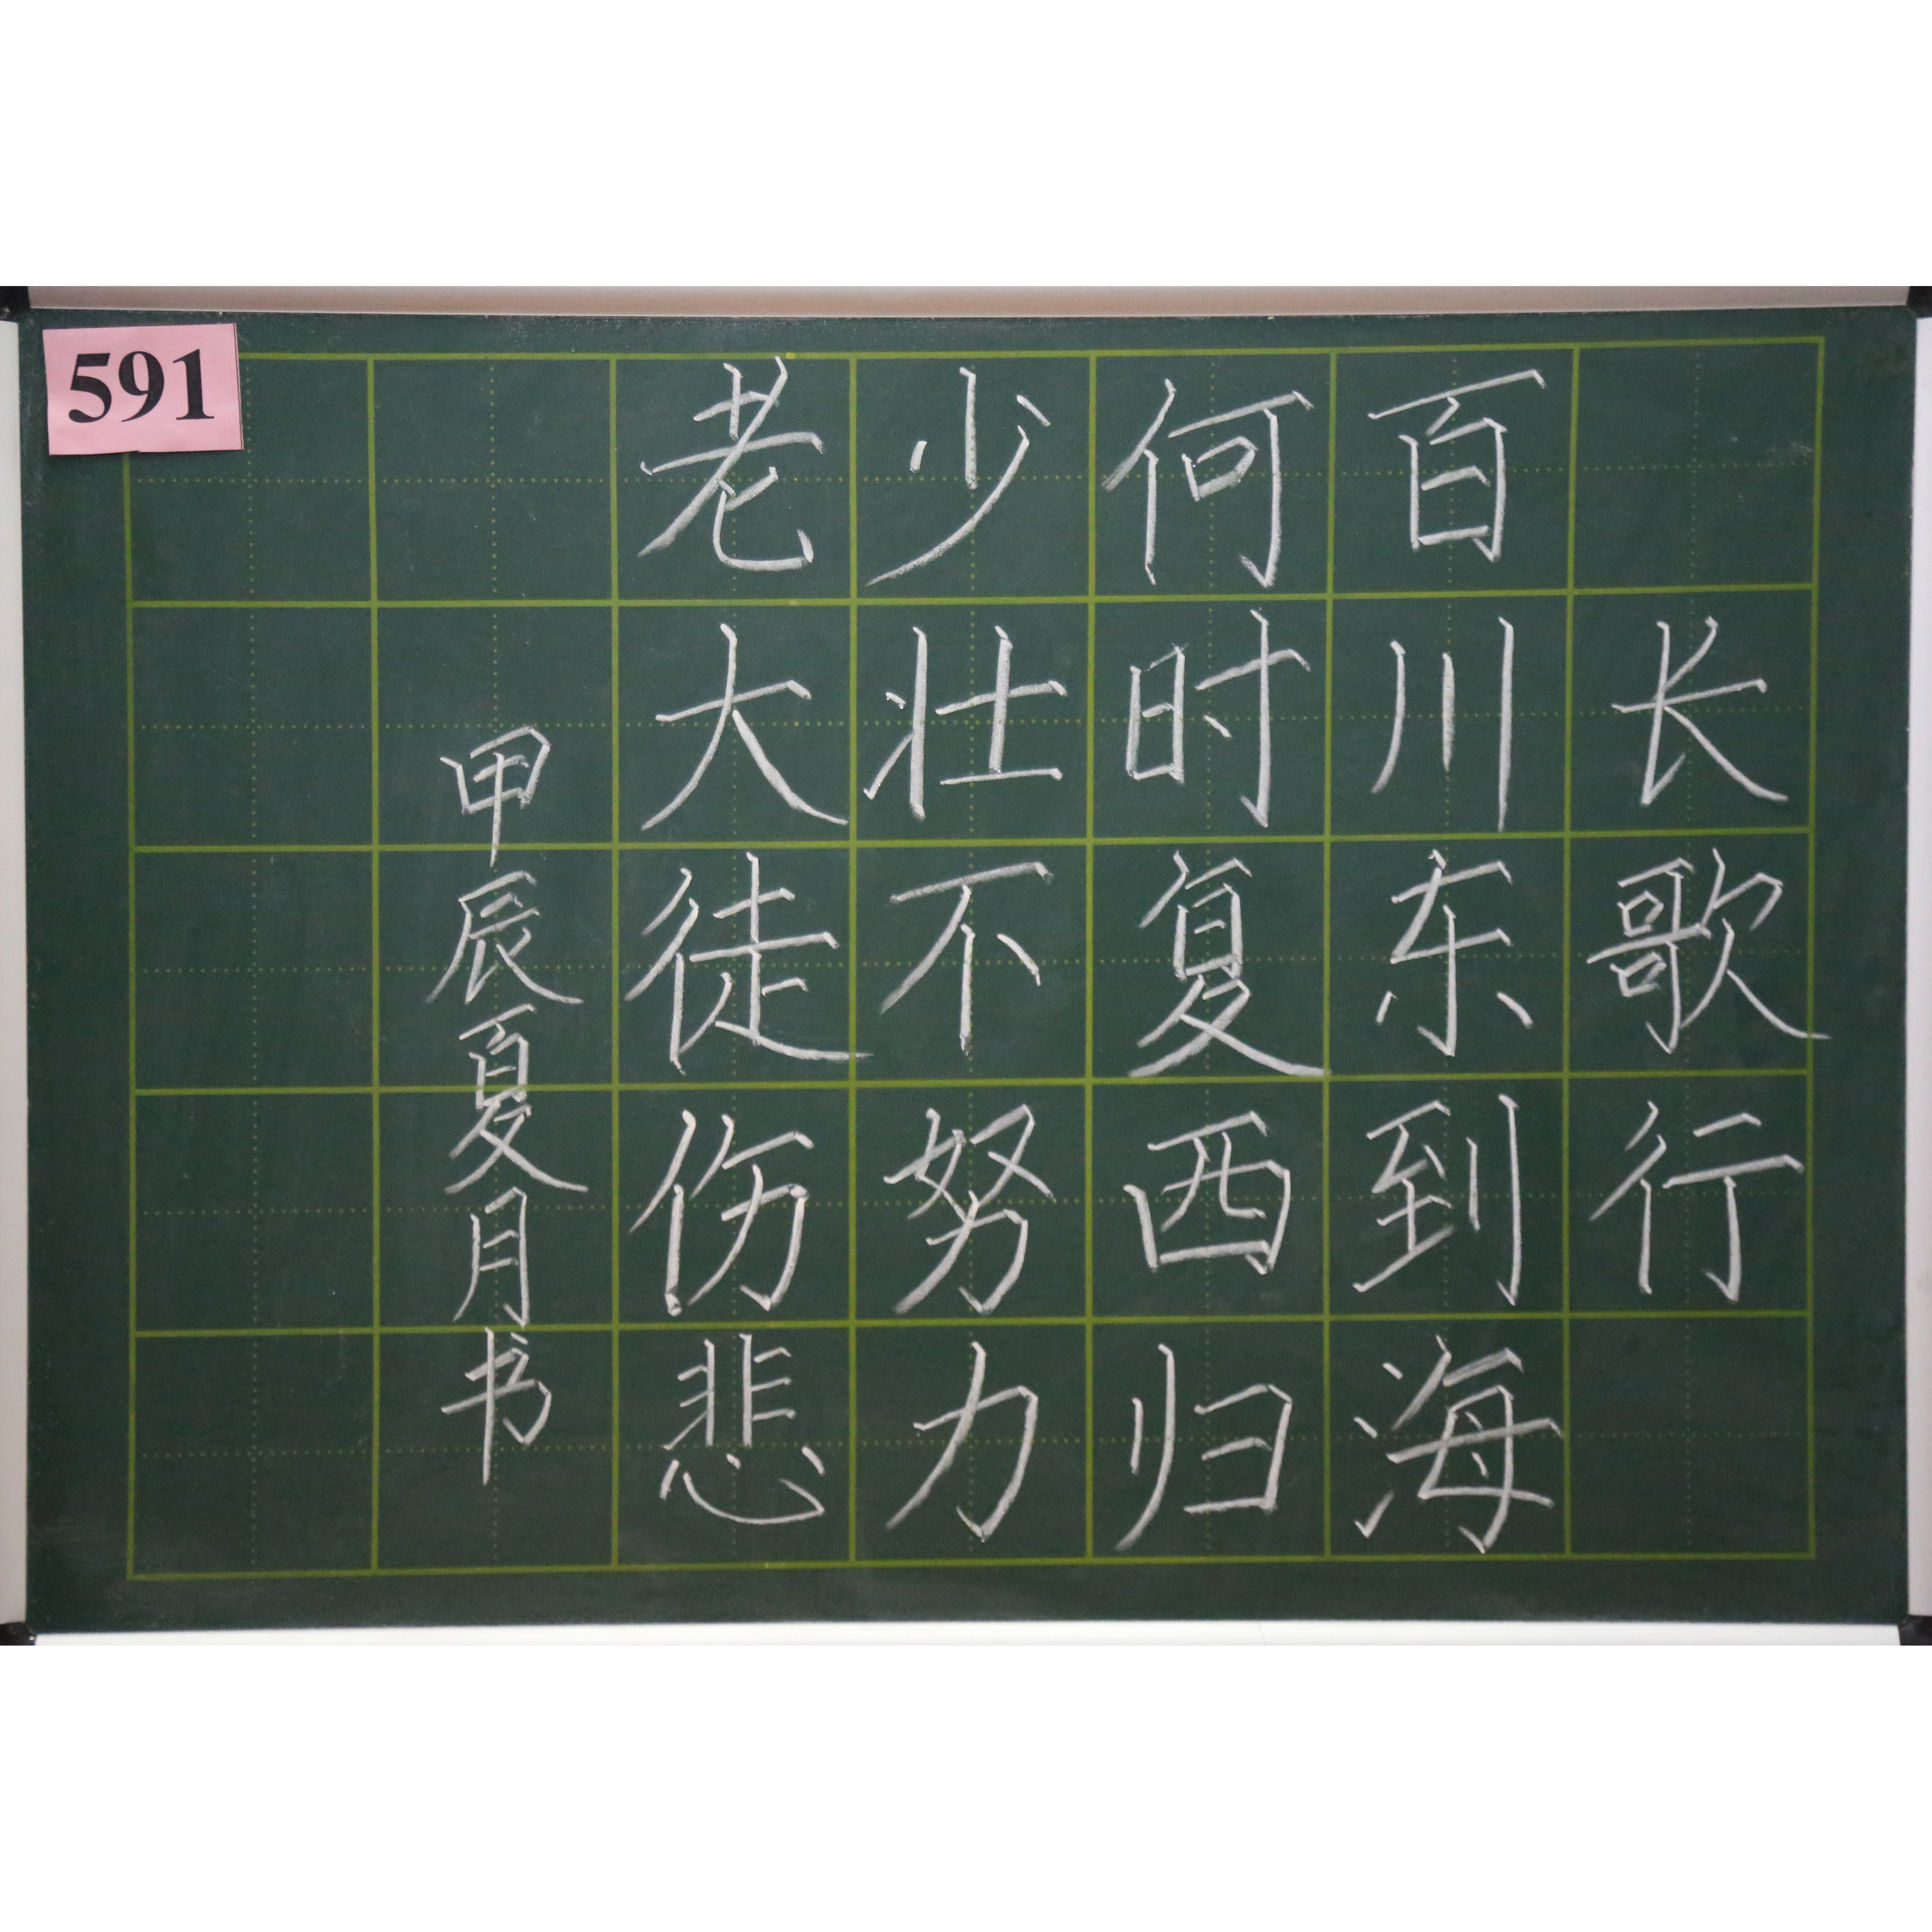 长歌行
百川东到海
何时复西归
少壮不努力
老大徒伤悲
甲辰夏月书
591